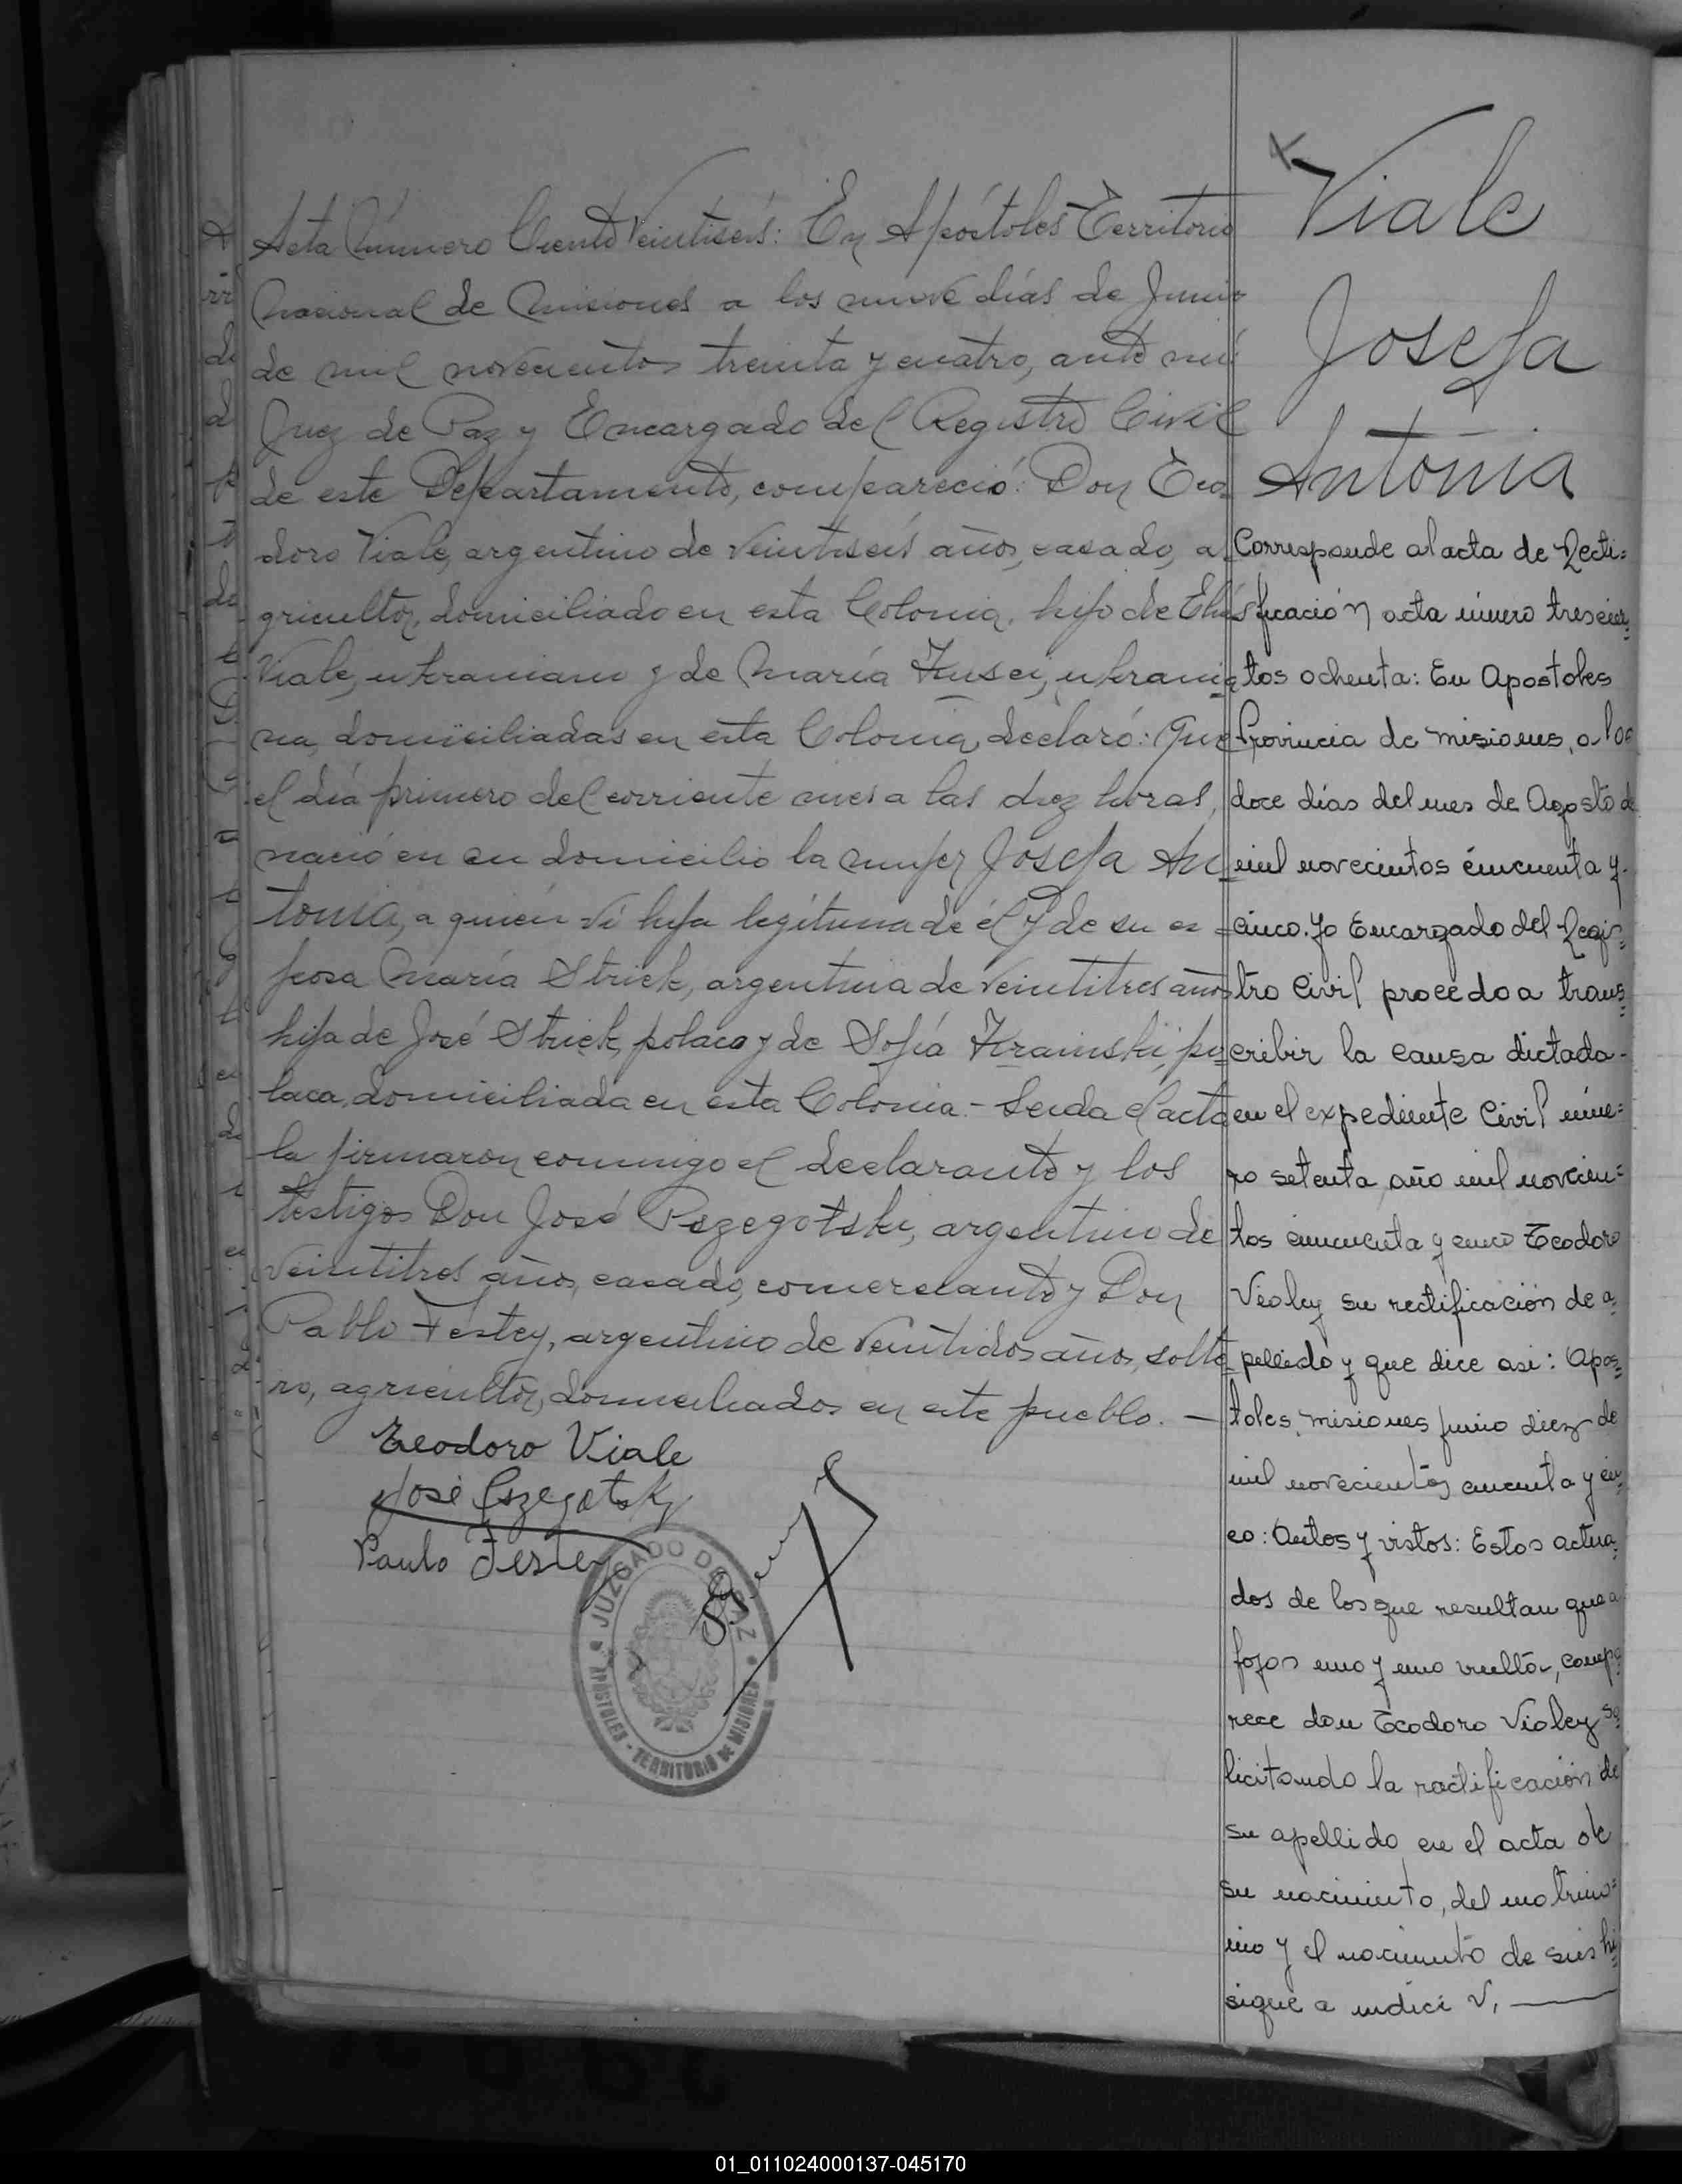 Acta Número Ciento Veintiseis: En Apóstoles Territorio
Nacional de Misiones a los nueve días de Junio
de mil novecientos treinta y cuatro, ante mí
Juez de Paz y Encargado del Registro Civil
de este Departamento, compareció: Don Teo
doro Viale, argentino de veintiseis años, casado, a
gricultor, domiciliado en esta Colonia, hijo de Elías
Viale, ukraniano y de María Kusei, ukrania
na, domiciliadas en esta Colonia, declaró: Que
el día primero del corriente mes a las diez horas,
nació en su domicilio la mujer Josefa An
tonia, a quien vi hija legítima de él y de su es
posa María Striek, argentina de veintitres años
hija de José Striek, polaco y de Sofía Krainski, po
laca, domiciliada en esta Colonia.- Leida el acta
la firmaron conmigo el declarante y los
testigos Don José Pszegotski, argentino de
veintitres años, casado, comerciante y Don
Pablo Festey, argentino de veintidos años, solte
ro, agricultor, domiciliados en este pueblo. —
Teodoro Viale
José Pszegotsky
Paulo Festey
JUZGADO DE PAZ
APÓSTOLES - TERRITORIO DE MISIONES
Viale
Josefa
Antonia
Corresponde al acta de Recti=
ficación acta número trescien
tos ochenta: En Apostoles
Provincia de Misiones, a los
doce días del mes de Agosto de
mil novecientos cincuenta y
cinco. Yo Encargado del Regis=
tro Civil procedo a trans
cribir la causa dictada
en el expediente Civil núme=
ro setenta año mil novecien=
tos cincuenta y cinco Teodoro
Violey su rectificación de a
pellido y que dice asi: Apos=
toles, misiones junio diez de
mil novecientos cincuenta y cin
co: Autos y vistos: Estos actua
dos de los que resultan que a
fojas uno y uno vuelta, compa
rece don Teodoro Violey so
licitando la rectificación de
su apellido en el acta de
su nacimiento, del matrimo=
nio y el nacimiento de sus hi
sigue a indice V, —
01_011024000137-045170